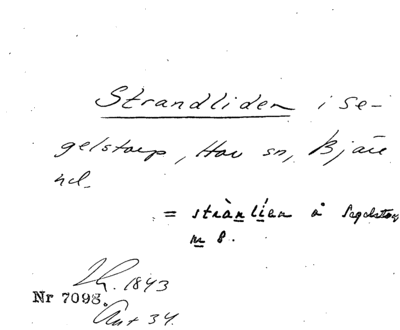 Strandliden i Se-
gelstorp, Hov sn, Bjäre
hd.
= strànlíen å Segelstorp
m 8.
Lh. 1843
Nr 7098.
Ant 34.